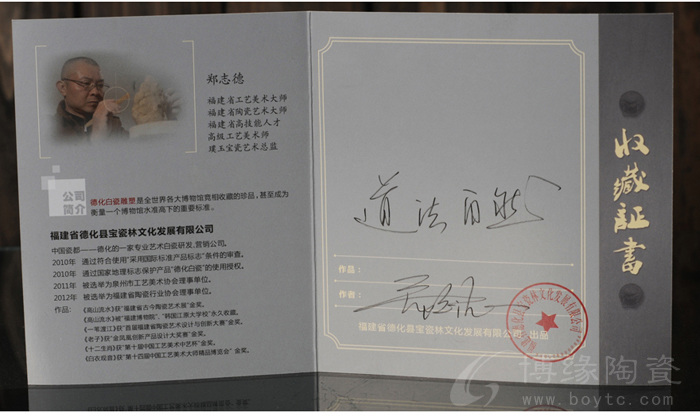 郑志德
福建省工艺美术大师
福建省陶瓷艺术大师
福建省高技能人才
高级工艺美术师
璞玉宝瓷艺术总监
公司
简介
德化白瓷雕塑是全世界各大博物馆竞相收藏的珍品,甚至成为
衡量一个博物馆水准高下的重要标准。
福建省德化县宝瓷林文化发展有限公司
中国瓷都——德化的一家专业艺术白瓷研发,营销公司。
2010年 通过符合使用“采用国际标准产品标志”条件的审查。
2010年 通过国家地理标志保护产品“德化白瓷”的使用授权。
2011年 被选举为泉州市工艺美术协会理事单位。
2012年 被选举为福建省陶瓷行业协会理事单位。
作品:《高山流水》获“福建省古今陶瓷艺术展”金奖。
《高山流水》被“福建博物院”、“韩国江原大学校”永久收藏。
《一苇渡江》获“首届福建陶瓷艺术设计与创新大赛”金奖。
《老子》获“金凤凰创新产品设计大奖赛”金奖。
《十二生肖》获“第十届中国工艺美术中艺杯”金奖。
《白衣观音》获“第十四届中国工艺美术大师精品博览会”金奖。
道法自然
作品:
作者:
福建省德化县宝瓷林文化发展有限公司 出品
收藏証書
博缘陶瓷
www.boytc.com